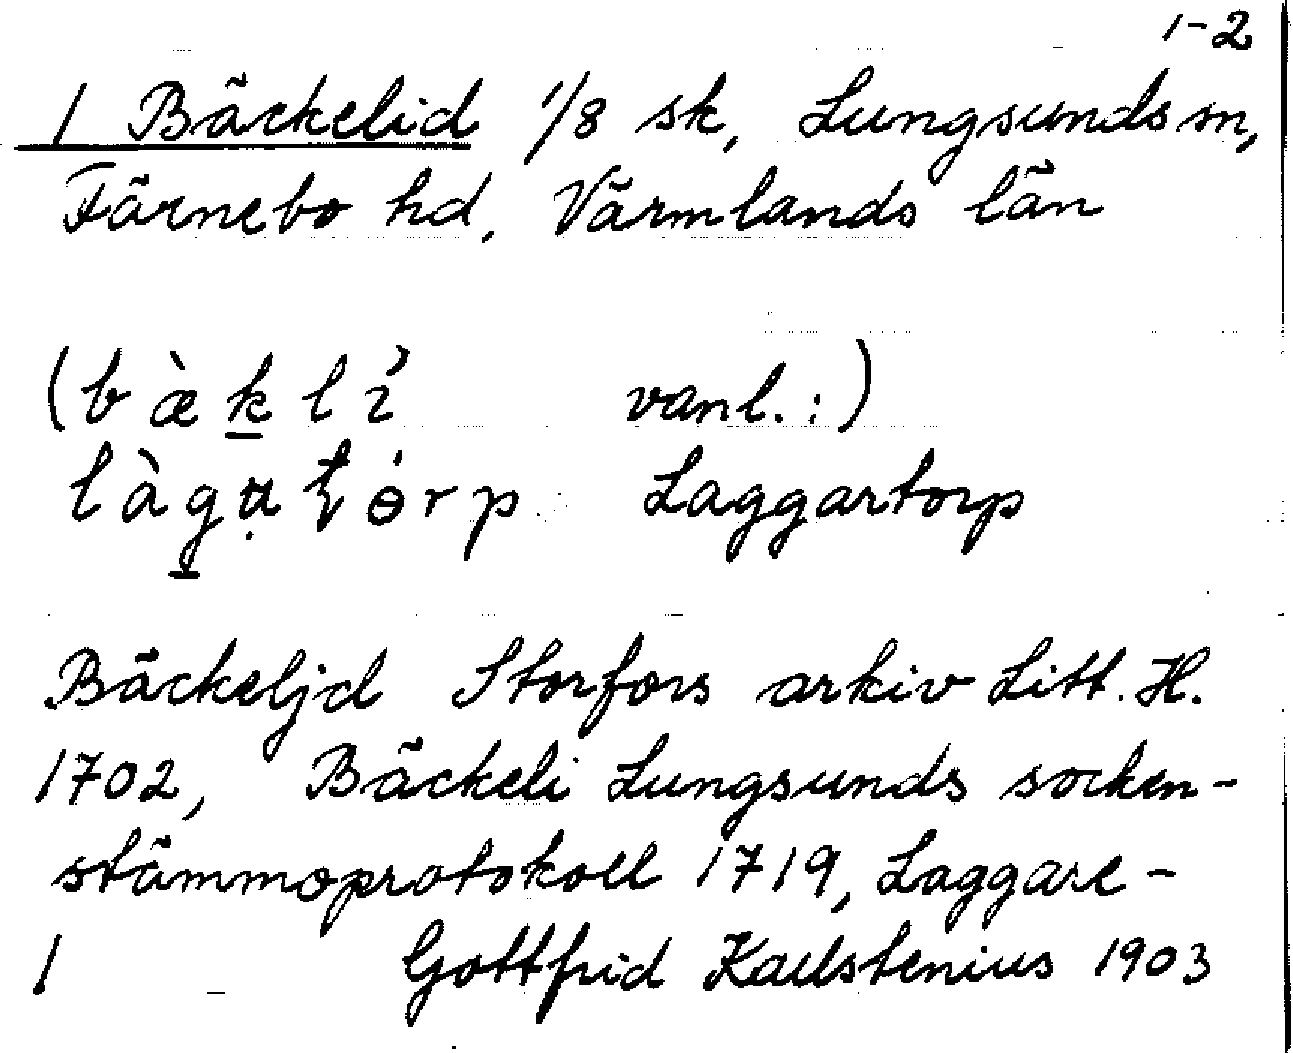 1-2
1 Bäckelid 1/8 sk, Lungsunds sn,
Färnebo hd, Värmlands län
(bæ̀k̲lí vanl.:)
làg̲ạtɵ́rp Laggartorp
Bäckeljd Storfors arkiv Litt. H.
1702, Bäckeli Lungsunds socken-
stämmoprotokoll 1719, Laggare-
1 Gottfrid Kallstenius 1903